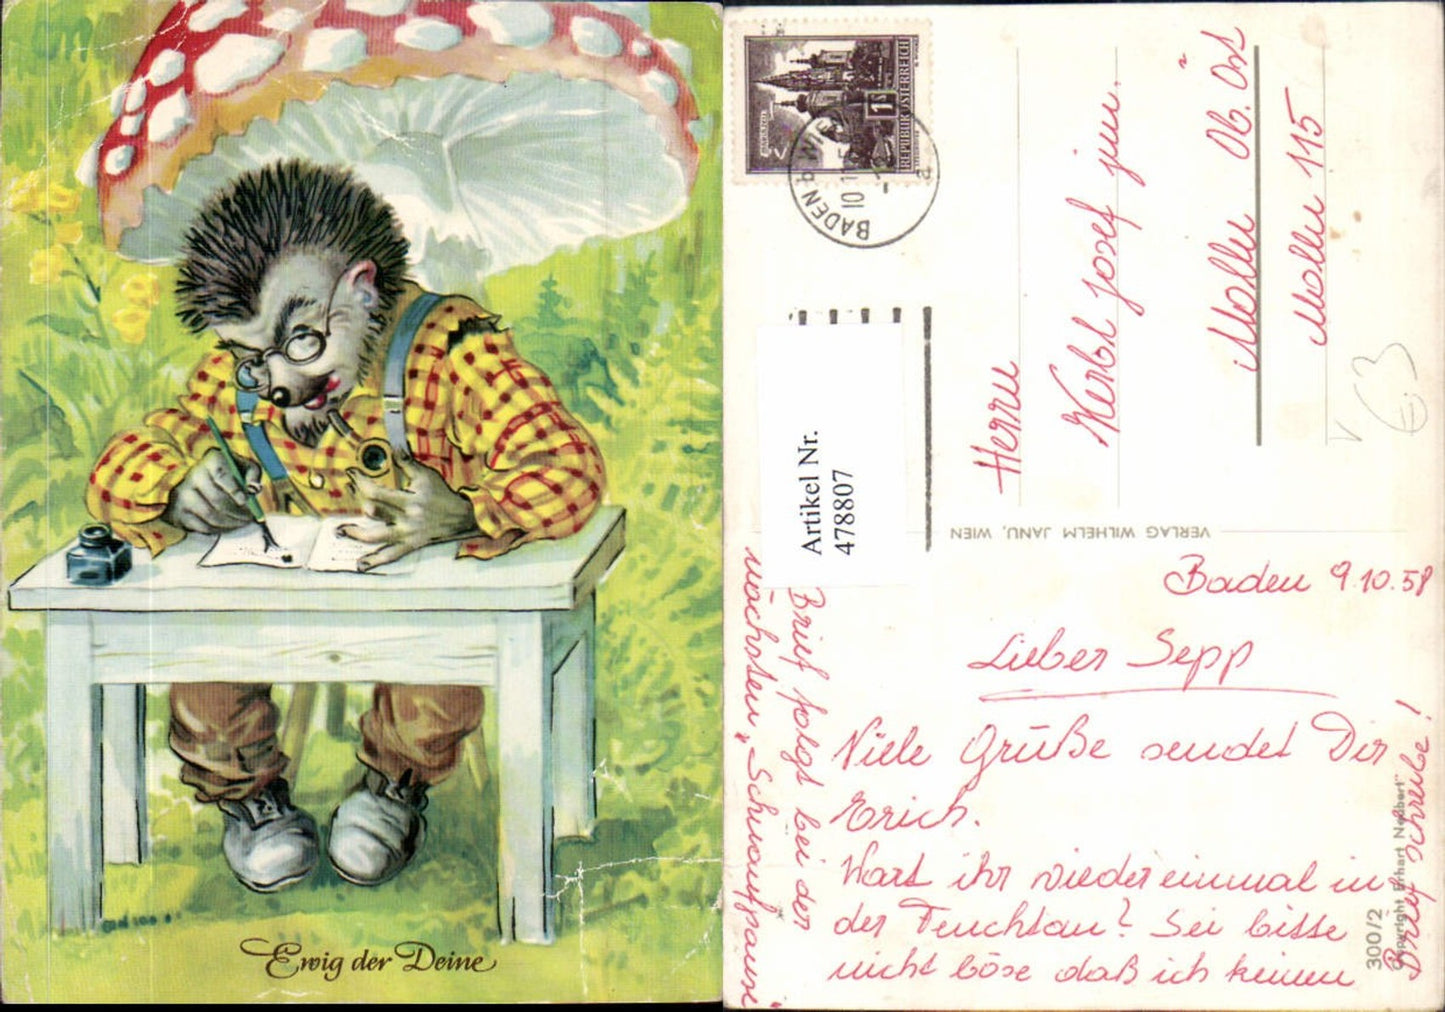 Ewig der Deine
REPUBLIK ÖSTERREICH
BADEN b. WIEN
Artikel Nr.
478807
Herrn
Kerbl Josef jun.
Mollu Ob. Öst
Mollu 115
€3
VERLAG WILHELM JANU, WIEN
Baden 9.10.58
Lieber Sepp
Viele Grüße sendet Dir
Erich.
Wart ihr wieder einmal in
der Feuchtau? Sei bitte
nicht böse daß ich keinen
Brief schreibe!
Brief folgt bei der
nächsten „Schnaufpause"
300/2
Copyright Erhart Neubert